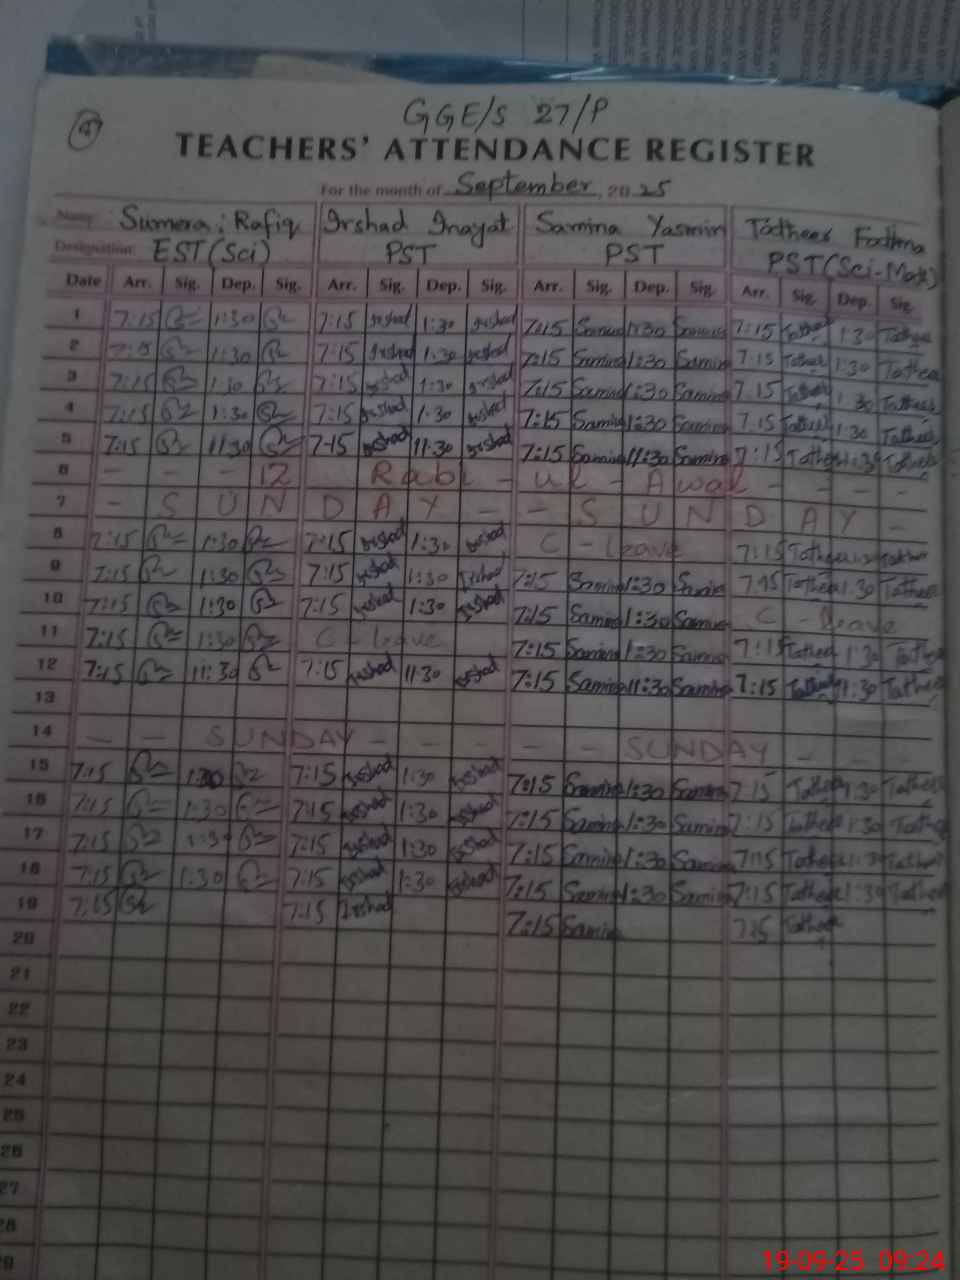 GGE/S 27/P
TEACHERS' ATTENDANCE REGISTER
For the month of September, 2025
Name: Sumera Rafiq Irshad Inayat Samina Yasmin Tatheer Fathma
Designation: EST(Sci) PST PST PST(Sci-Math)
Date Arr. Sig. Dep. Sig. Arr. Sig. Dep. Sig. Arr. Sig. Dep. Sig. Arr. Sig. Dep. Sig.
1 7:15 1:30 7:15 Irshad 1:30 Irshad 7:15 Samina 1:30 Samina 7:15 Tatheer 1:30 Tatheer
2 7:15 1:30 7:15 Irshad 1:30 Irshad 7:15 Samina 1:30 Samina 7:15 Tatheer 1:30 Tatheer
3 7:15 1:30 7:15 Irshad 1:30 Irshad 7:15 Samina 1:30 Samina 7:15 Tatheer 1:30 Tatheer
4 7:15 1:30 7:15 Irshad 1:30 Irshad 7:15 Samina 1:30 Samina 7:15 Tatheer 1:30 Tatheer
5 7:15 11:30 7-15 Irshad 11:30 Irshad 7:15 Samina 11:30 Samina 7:15 Tatheer 11:30 Tatheer
6 - - - 12 Rabi - ul - Awal - - - -
7 - SUNDAY - - SUNDAY -
8 7:15 1:30 7:15 Irshad 1:30 Irshad C - leave 7:15 Tatheer 1:30 Tatheer
9 7:15 1:30 7:15 Irshad 1:30 Irshad 7:15 Samina 1:30 Samina 7:15 Tatheer 1:30 Tatheer
10 7:15 1:30 7:15 Irshad 1:30 Irshad 7:15 Samina 1:30 Samina C - leave
11 7:15 1:30 C - leave 7:15 Samina 1:30 Samina 7:15 Tatheer 1:30 Tatheer
12 7:15 11:30 7:15 Irshad 11:30 Irshad 7:15 Samina 11:30 Samina 7:15 Tatheer 11:30 Tatheer
13
14 - - SUNDAY - - - - - SUNDAY - - -
15 7:15 1:30 7:15 Irshad 1:30 Irshad 7:15 Samina 1:30 Samina 7:15 Tatheer 1:30 Tatheer
16 7:15 1:30 7:15 Irshad 1:30 Irshad 7:15 Samina 1:30 Samina 7:15 Tatheer 1:30 Tatheer
17 7:15 1:30 7:15 Irshad 1:30 Irshad 7:15 Samina 1:30 Samina 7:15 Tatheer 1:30 Tatheer
18 7:15 1:30 7:15 Irshad 1:30 Irshad 7:15 Samina 1:30 Samina 7:15 Tatheer 1:30 Tatheer
19 7:15 7:15 Irshad 7:15 Samina 7:15 Tatheer
20
21
22
23
24
25
26
27
28
29
19-09-25 09:24